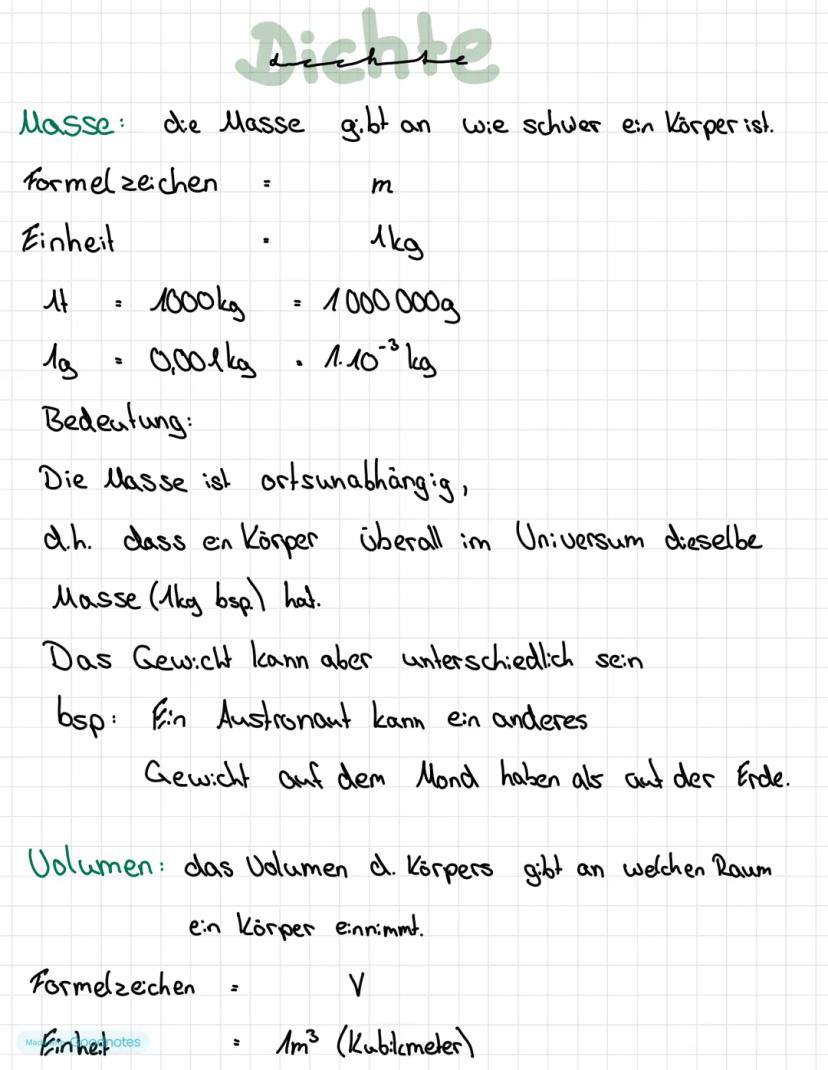 Dichte
dichte
Masse: die Masse gibt an wie schwer ein Körper ist.
Formelzeichen = m
Einheit = 1kg
1t = 1000kg = 1000 000g
1g = 0,001kg = 1·10⁻³ kg
Bedeutung:
Die Masse ist ortsunabhängig,
d.h. dass ein Körper überall im Universum dieselbe
Masse (1kg bsp.) hat.
Das Gewicht kann aber unterschiedlich sein
bsp: Ein Austronaut kann ein anderes
Gewicht auf dem Mond haben als auf der Erde.
Volumen: das Volumen d. Körpers gibt an welchen Raum
ein Körper einnimmt.
Formelzeichen = V
Einheit = 1m³ (Kubikmeter)
Goodnotes